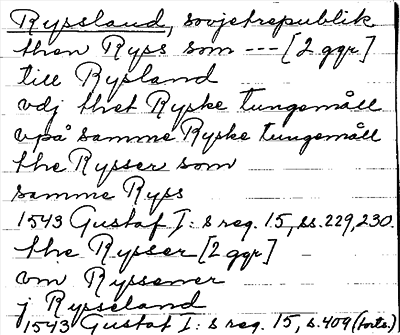 Rypsland, sovjetrepublik
then Ryps som --- [2 ggr]
till Rypland
vdj thet Rypke tungemåll
vpå samme Rypke tungemåll
the Rypser som
samme Ryps
1543 Gustaf I: s reg. 15, ss. 229, 230.
the Rypser [2 ggr]
om Rypsener
j Rypseland
1543 Gustaf I: s reg. 15, s. 409 (forts.)